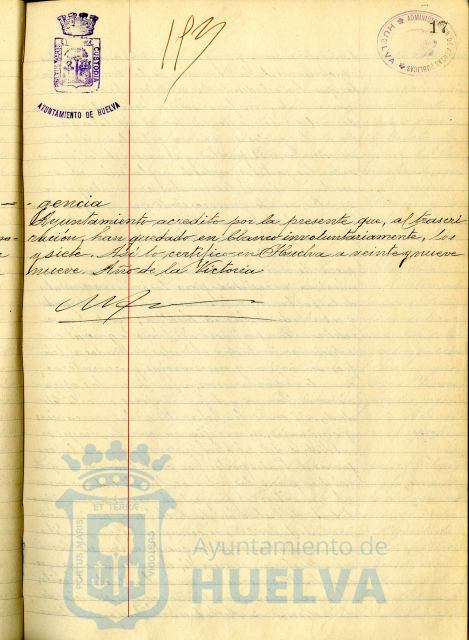 17
CUSTODIA
AYUNTAMIENTO DE HUELVA
HUELVA
gencia
Ayuntamiento acredito por la presente que, al trascri
ración, han quedado en blanco involuntariamente, los
y siete. Así lo certifico en Huelva a veintey nueve
nueve. Año de la Victoria
PORTUS MARIS
ET TERRÆ
CUSTODIA
Ayuntamiento de
HUELVA